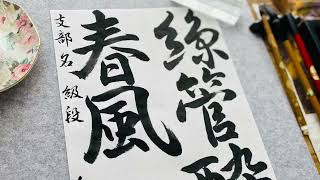 絲管酔
春風
支部名 級段